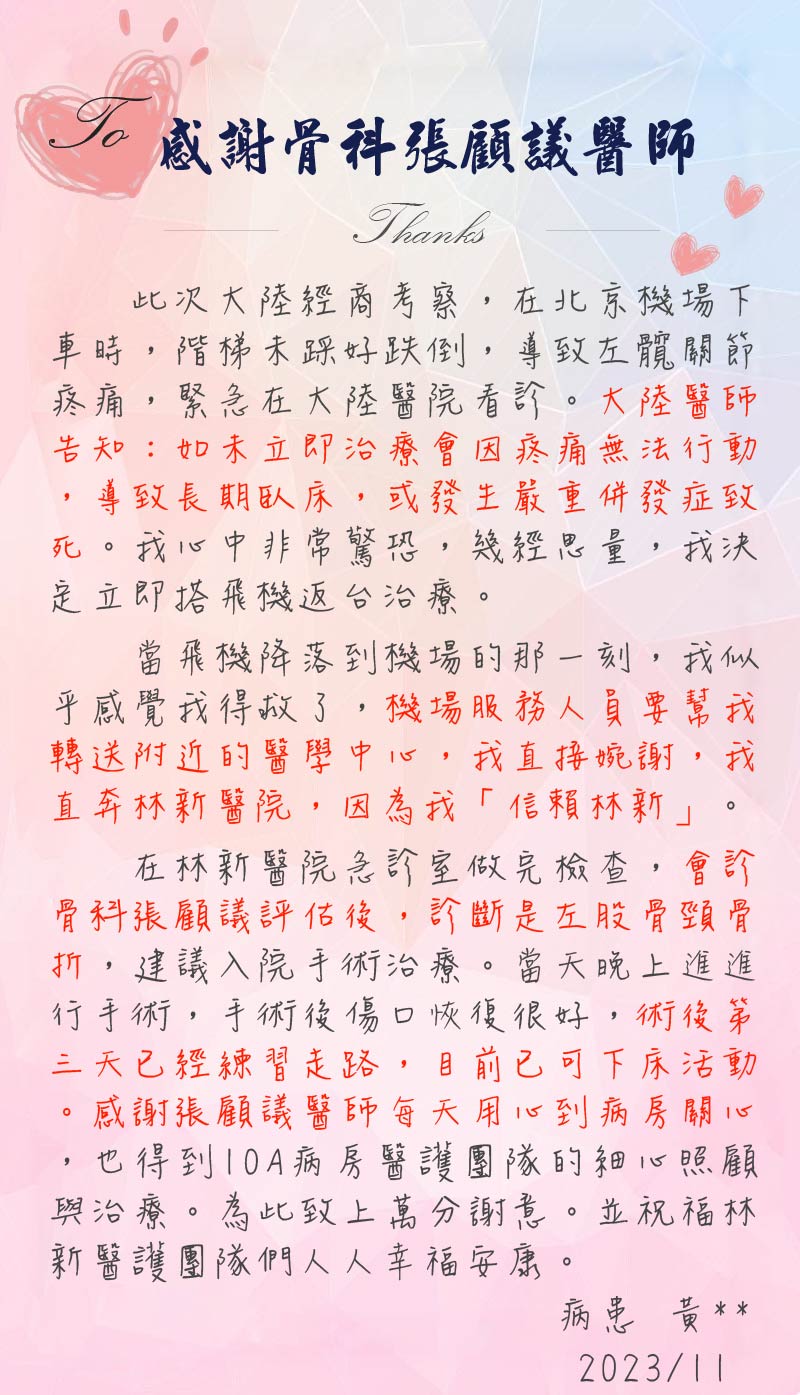 To 感謝骨科張顧議醫師
Thanks
此次大陸經商考察，在北京機場下
車時，階梯未踩好跌倒，導致左髖關節
疼痛，緊急在大陸醫院看診。大陸醫師
告知：如未立即治療會因疼痛無法行動
，導致長期臥床，或發生嚴重併發症致
死。我心中非常驚恐，幾經思量，我決
定立即搭飛機返台治療。
當飛機降落到機場的那一刻，我似
乎感覺我得救了，機場服務人員要幫我
轉送附近的醫學中心，我直接婉謝，我
直奔林新醫院，因為我「信賴林新」。
在林新醫院急診室做完檢查，會診
骨科張顧議評估後，診斷是左股骨頸骨
折，建議入院手術治療。當天晚上進進
行手術，手術後傷口恢復很好，術後第
三天已經練習走路，目前已可下床活動
。感謝張顧議醫師每天用心到病房關心
，也得到10A病房醫護團隊的細心照顧
與治療。為此致上萬分謝意。並祝福林
新醫護團隊們人人幸福安康。
病患 黃**
2023/11